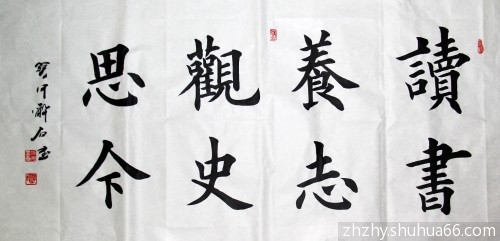 讀書
養志
觀史
思今
zhzhyshuhua66.com